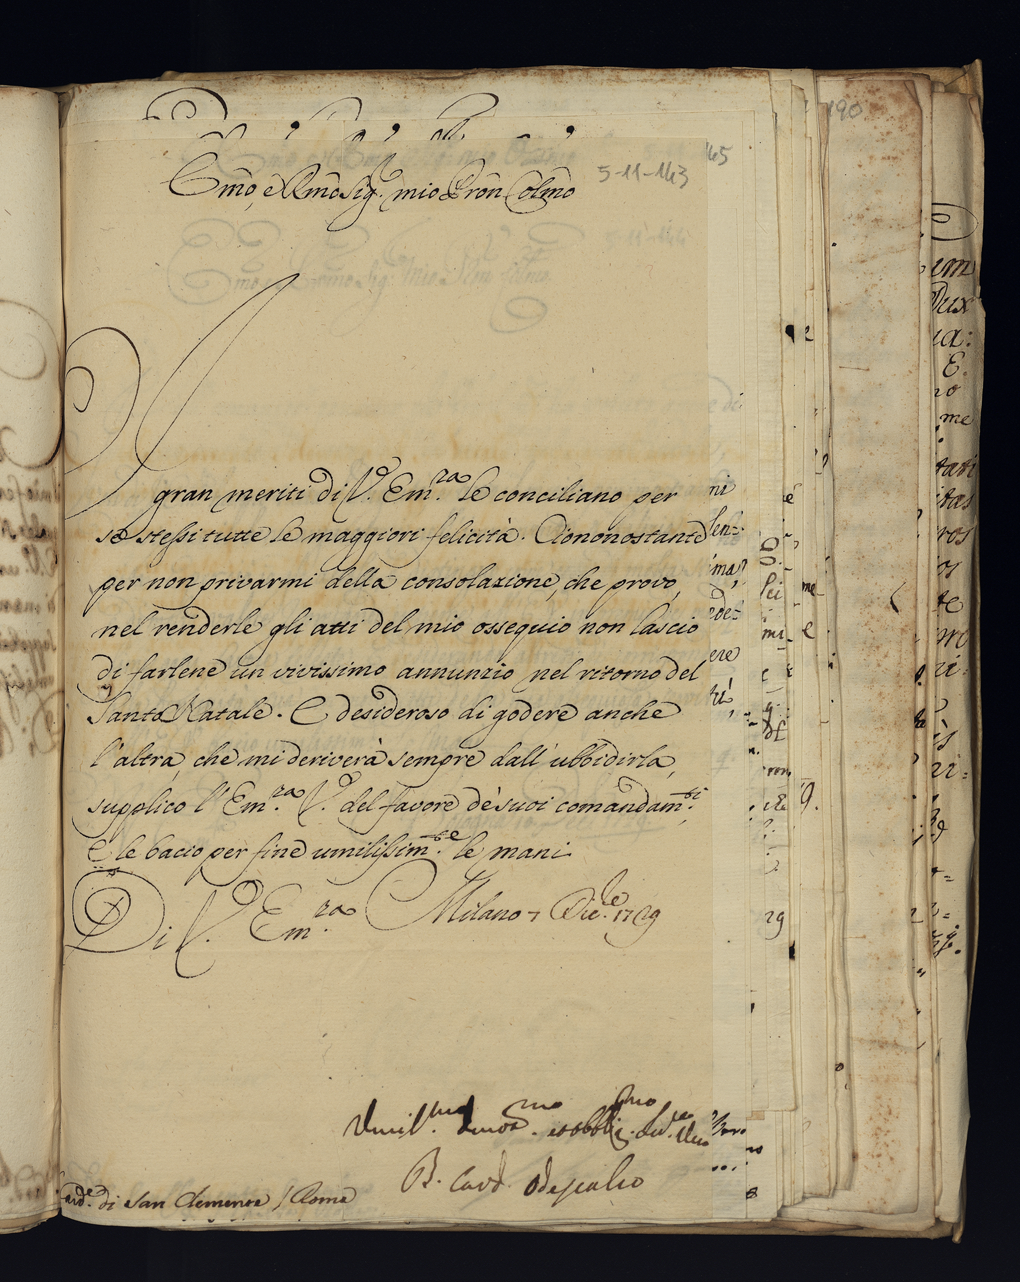 Emo, e Rmo Sig.r mio Pron Colmo
5-11-143
145
190
I gran meriti di V.a Em.za le conciliano per
se stessi tutte le maggiori felicità. Ciononostante
per non privarmi della consolazione, che provo,
nel renderle gli atti del mio ossequio non lascio
di farlene un vivissimo annunzio nel ritorno del
Santo Natale. E desideroso di godere anche
l'altra, che mi deriverà sempre dall'ubbidirla,
supplico l'Em.za V.a del favore de' suoi comandam.ti,
e le bacio per fine umilissim.te le mani.
Di V.a Em.za Milano 7 Dic.le 1729
Umil.mo devot.mo et obblig.mo
B. Card. Odescalco
Card.e di San Clemente / Roma